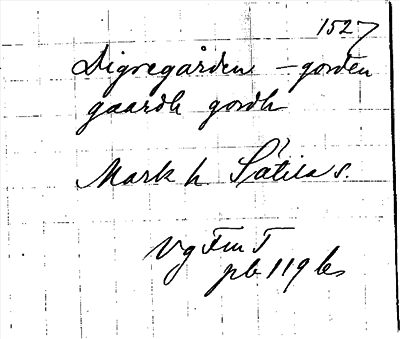 1527
Digregården -gorden
gaardh gordh
Mark h. Sätila s.
VgFmT
pb 119 bs